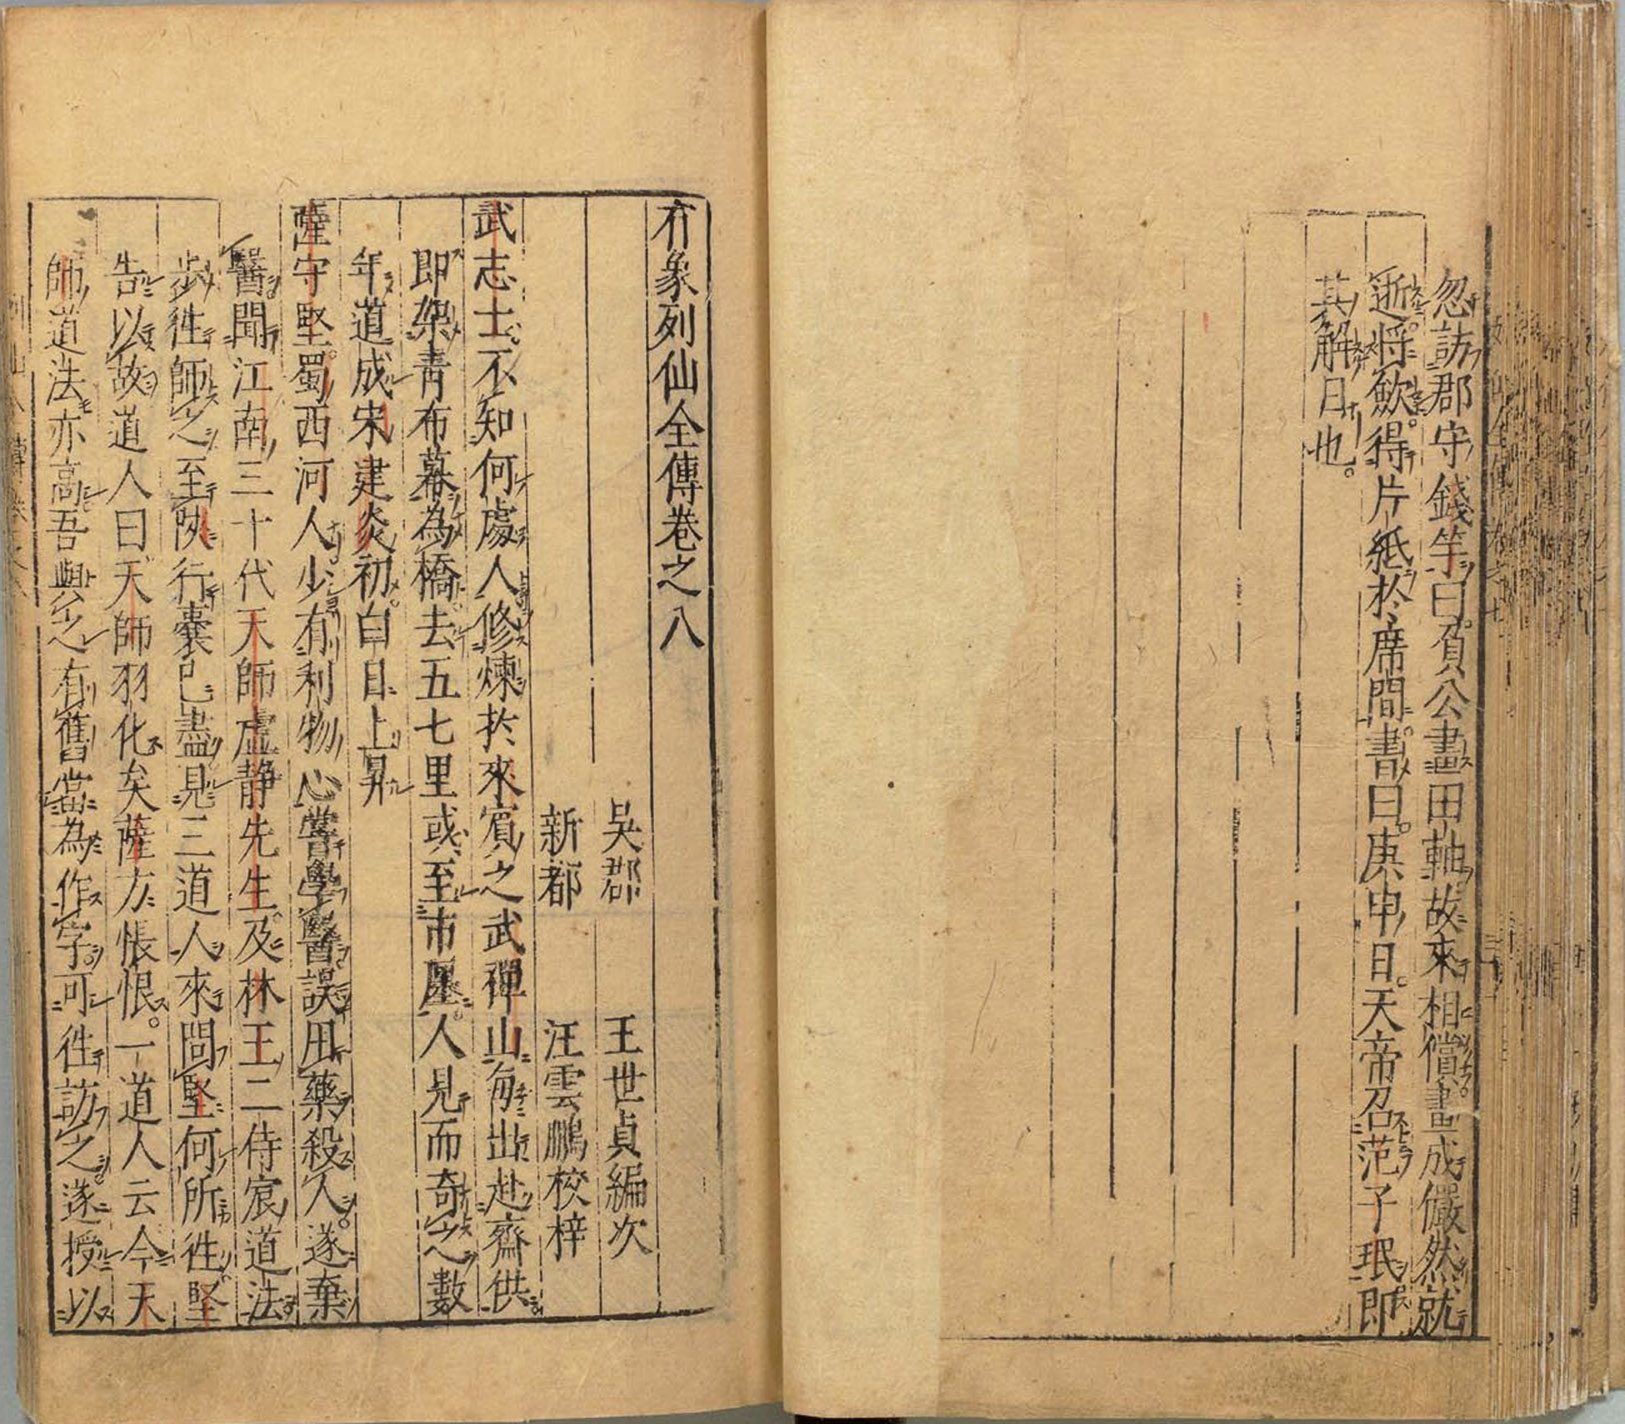 忽訪郡守錢竽曰負公畫田軸故來相償畫成儼然就
逝將歛得片紙於席間書曰庚申日天帝召范子珉即
其解日也
有象列仙全傳卷之八
吳郡 王世貞編次
新都 汪雲鵬校梓
武志士不知何處人修煉於來賓之武禪山每出赴齋供
即架青布幕為橋去五七里或至市廛人見而奇之數
年道成宋建炎初白日上昇
薩守堅蜀西河人少有利物心嘗學醫誤用藥殺人遂棄
醫聞江南三十代天師虛靜先生及林王二侍宸道法
步徃師之至陝行囊已盡見三道人來問堅何所徃堅
告以故道人曰天師羽化矣薩方悵恨一道人云今天
師道法亦高吾與之有舊當為作字可徃訪之遂授以